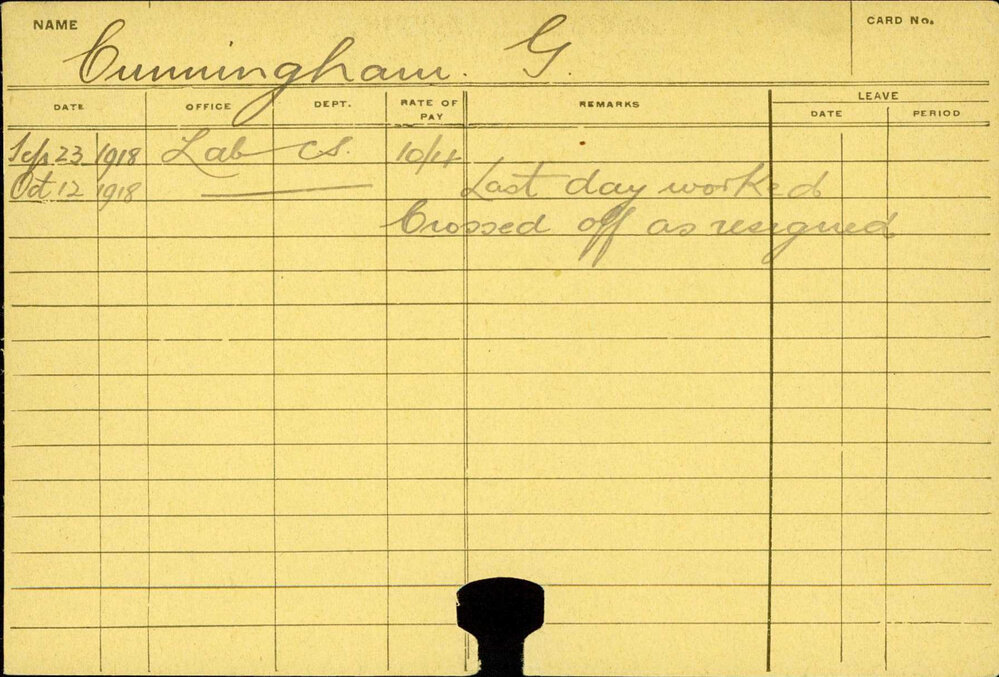 NAME
CARD No.
Cunningham. G.
DATE OFFICE DEPT. RATE OF PAY REMARKS LEAVE
DATE PERIOD
Sep 23 1918 Lab CS. 10/11
Oct 12 1918 Last day worked
Crossed off as resigned